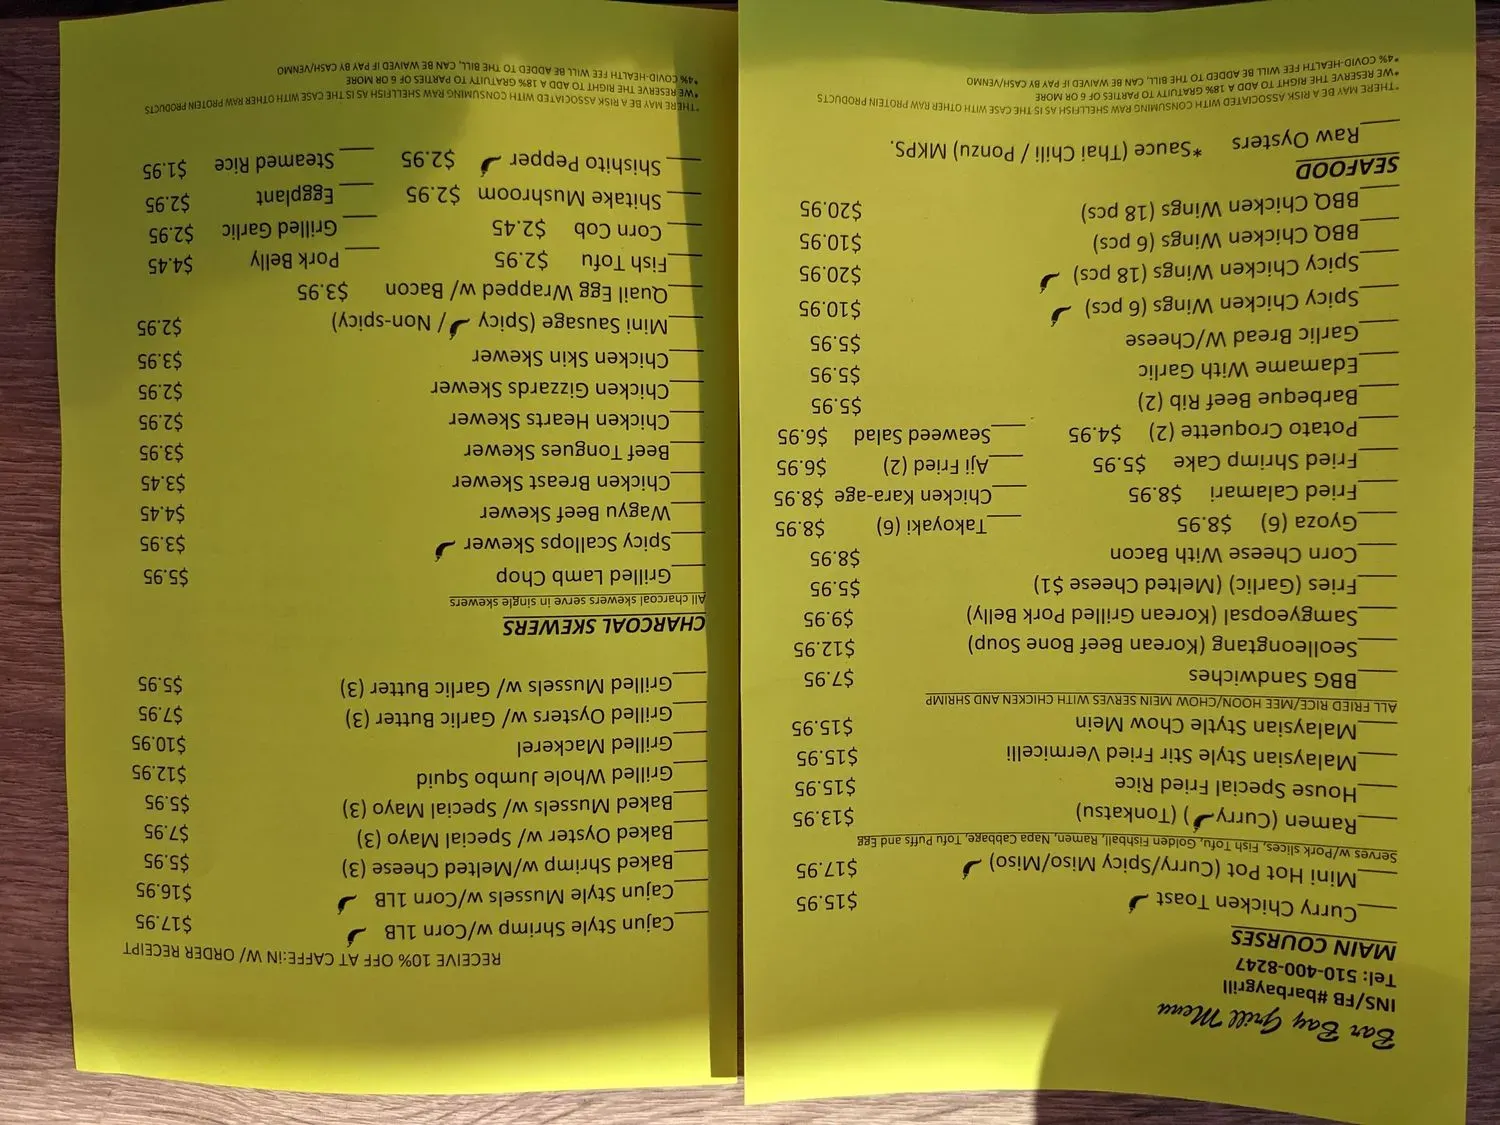 Bar Bay Grill Menu
INS/FB #barbaygrill
Tel: 510-400-8247
MAIN COURSES
___Curry Chicken Toast $15.95
___Mini Hot Pot (Curry/Spicy Miso/Miso) $17.95
Serves w/Pork slices, Fish Tofu, Golden Fishball, Ramen, Napa Cabbage, Tofu Puffs and Egg
___Ramen (Curry ) (Tonkatsu) $13.95
___House Special Fried Rice $15.95
___Malaysian Style Stir Fried Vermicelli $15.95
___Malaysian Stytle Chow Mein $15.95
ALL FRIED RICE/MEE HOON/CHOW MEIN SERVES WITH CHICKEN AND SHRIMP
___BBG Sandwiches $7.95
___Seolleongtang (Korean Beef Bone Soup) $12.95
___Samgyeopsal (Korean Grilled Pork Belly) $9.95
___Fries (Garlic) (Melted Cheese $1) $5.95
___Corn Cheese With Bacon $8.95
___Gyoza (6) $8.95 ___Takoyaki (6) $8.95
___Fried Calamari $8.95 ___Chicken Kara-age $8.95
___Fried Shrimp Cake $5.95 ___Aji Fried (2) $6.95
___Potato Croquette (2) $4.95 ___Seaweed Salad $6.95
___Barbeque Beef Rib (2) $5.95
___Edamame With Garlic $5.95
___Garlic Bread W/Cheese $5.95
___Spicy Chicken Wings (6 pcs) $10.95
___Spicy Chicken Wings (18 pcs) $20.95
___BBQ Chicken Wings (6 pcs) $10.95
___BBQ Chicken Wings (18 pcs) $20.95
SEAFOOD
___Raw Oysters *Sauce (Thai Chili / Ponzu) MKPS.
*THERE MAY BE A RISK ASSOCIATED WITH CONSUMING RAW SHELLFISH AS IS THE CASE WITH OTHER RAW PROTEIN PRODUCTS
*WE RESERVE THE RIGHT TO ADD A 18% GRATUITY TO PARTIES OF 6 OR MORE
*4% COVID-HEALTH FEE WILL BE ADDED TO THE BILL, CAN BE WAIVED IF PAY BY CASH/VENMO
RECEIVE 10% OFF AT CAFFE:IN W/ ORDER RECEIPT
___Cajun Style Shrimp w/Corn 1LB $17.95
___Cajun Style Mussels w/Corn 1LB $16.95
___Baked Shrimp w/Melted Cheese (3) $5.95
___Baked Oyster w/ Special Mayo (3) $7.95
___Baked Mussels w/ Special Mayo (3) $5.95
___Grilled Whole Jumbo Squid $12.95
___Grilled Mackerel $10.95
___Grilled Oysters w/ Garlic Butter (3) $7.95
___Grilled Mussels w/ Garlic Butter (3) $5.95
CHARCOAL SKEWERS
All charcoal skewers serve in single skewers
___Grilled Lamb Chop $5.95
___Spicy Scallops Skewer $3.95
___Wagyu Beef Skewer $4.45
___Chicken Breast Skewer $3.45
___Beef Tongues Skewer $3.95
___Chicken Hearts Skewer $2.95
___Chicken Gizzards Skewer $2.95
___Chicken Skin Skewer $3.95
___Mini Sausage (Spicy / Non-spicy) $2.95
___Quail Egg Wrapped w/ Bacon $3.95
___Fish Tofu $2.95 ___Pork Belly $4.45
___Corn Cob $2.45 ___Grilled Garlic $2.95
___Shitake Mushroom $2.95 ___Eggplant $2.95
___Shishito Pepper $2.95 ___Steamed Rice $1.95
*THERE MAY BE A RISK ASSOCIATED WITH CONSUMING RAW SHELLFISH AS IS THE CASE WITH OTHER RAW PROTEIN PRODUCTS
*WE RESERVE THE RIGHT TO ADD A 18% GRATUITY TO PARTIES OF 6 OR MORE
*4% COVID-HEALTH FEE WILL BE ADDED TO THE BILL, CAN BE WAIVED IF PAY BY CASH/VENMO